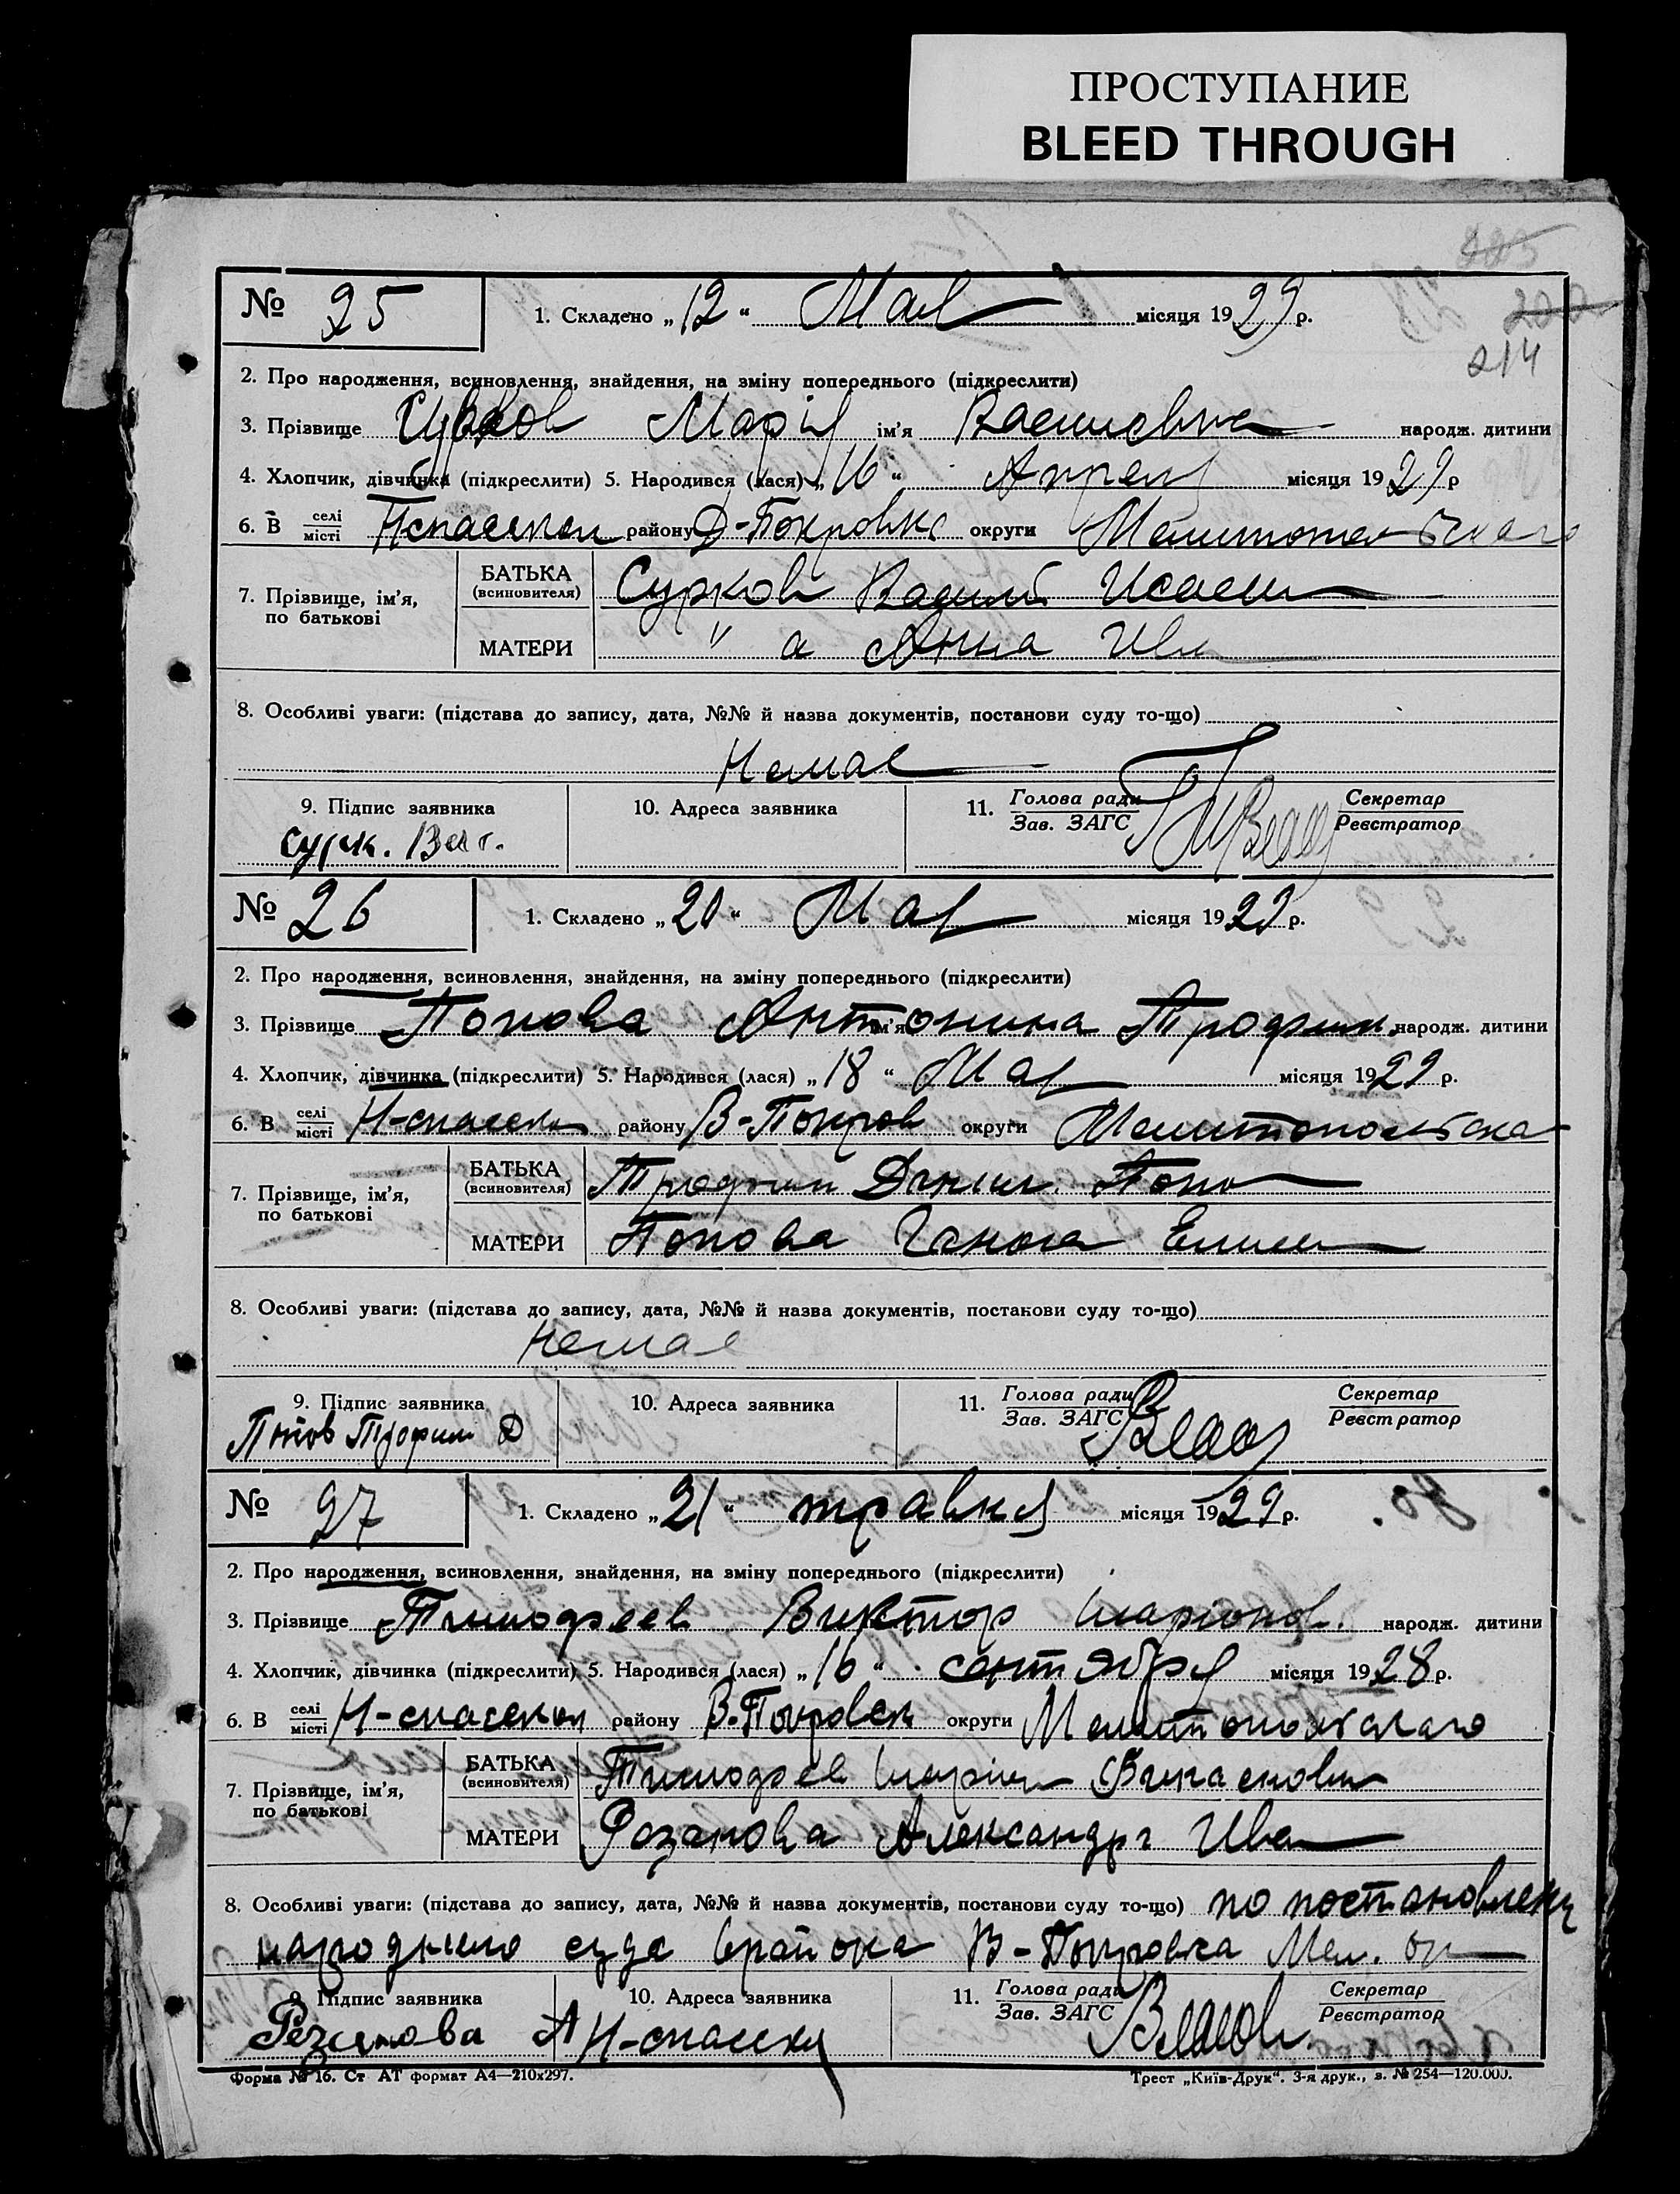 ПРОСТУПАНИЕ
BLEED THROUGH
223
200
214
№ 25 1. Складено „12“ Мая місяця 1929 р.
2. Про народження, всиновлення, знайдення, на зміну попереднього (підкреслити)
3. Прізвище Сурков Марія ім'я Василиевна народж. дитини
4. Хлопчик, дівчинка (підкреслити) 5. Народився (лася) „16“ Апреля місяця 1929 р
6. В селі/місті Нспасском району В-Покровка округи Мелитопольскаго
7. Прізвище, ім'я, по батькові
БАТЬКА (всиновителя) Сурков Исаеви
МАТЕРИ " а Анна Ив
8. Особливі уваги: (підстава до запису, дата, №№ й назва документів, постанови суду то-що)
Немае
9. Підпис заявника 10. Адреса заявника 11. Голова ради/Зав. ЗАГС Секретар/Реєстратор
Сурк. Вас.
№ 26 1. Складено „20“ Мая місяця 1929 р.
2. Про народження, всиновлення, знайдення, на зміну попереднього (підкреслити)
3. Прізвище Попова Антонина ім'я Трофим. народж. дитини
4. Хлопчик, дівчинка (підкреслити) 5. Народився (лася) „18“ Мая місяця 1929 р.
6. В селі/місті Н-спасском району В-Покров округи Мелитопольска
7. Прізвище, ім'я, по батькові
БАТЬКА (всиновителя) Трофим Данил. Попо
МАТЕРИ Попова Ганна
8. Особливі уваги: (підстава до запису, дата, №№ й назва документів, постанови суду то-що)
Немае
9. Підпис заявника 10. Адреса заявника 11. Голова ради/Зав. ЗАГС Секретар/Реєстратор
Попов Трофим Д
№ 27 1. Складено „21“ травня місяця 1929 р.
2. Про народження, всиновлення, знайдення, на зміну попереднього (підкреслити)
3. Прізвище Тимофеев Виктор Иларіонов. народж. дитини
4. Хлопчик, дівчинка (підкреслити) 5. Народився (лася) „16“ сентября місяця 1928 р.
6. В селі/місті Н-спасском району В-Покровск округи Мелитопольскаго
7. Прізвище, ім'я, по батькові
БАТЬКА (всиновителя) Тимофеев Иларіон
МАТЕРИ Розанова Александра Ива
8. Особливі уваги: (підстава до запису, дата, №№ й назва документів, постанови суду то-що) по постановлени
народного суда района В-Покровка Мел. ок
9. Підпис заявника 10. Адреса заявника 11. Голова ради/Зав. ЗАГС Секретар/Реєстратор
Розанова А Н-спасска Власов
Форма № 16. Ст АТ формат А4—210х297. Трест „Київ-Друк“. 3-я друк., з. № 254—120.000.